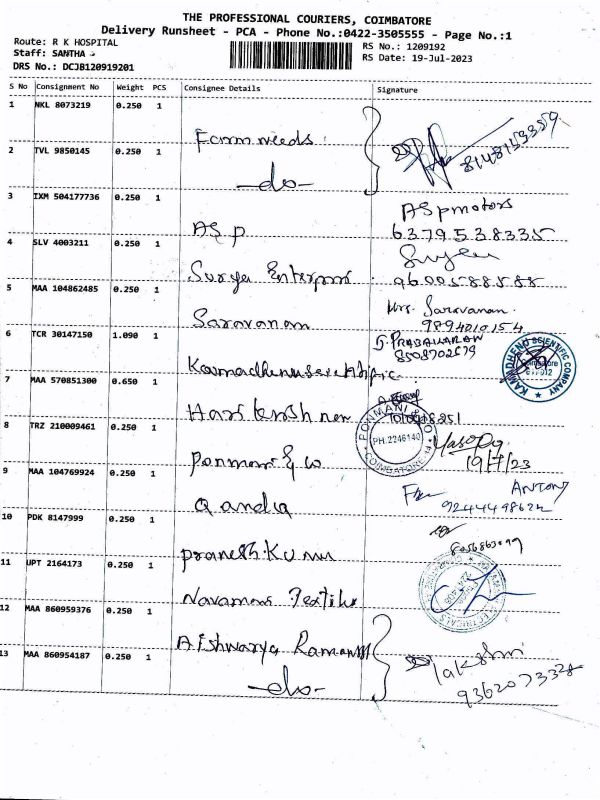 THE PROFESSIONAL COURIERS, COIMBATORE
Delivery Runsheet - PCA - Phone No.:0422-3505555 - Page No.:1
Route: R K HOSPITAL
RS No.: 1209192
Staff: SANTHA
RS Date: 19-Jul-2023
DRS No.: DCJB120919201
S No Consignment No Weight PCS Consignee Details Signature
1 NKL 8073219 0.250 1 Farm needs 8148153359
2 TVL 9850145 0.250 1 -do-
3 IXM 504177736 0.250 1 ASP ASP motors 6379538335
4 SLV 4003211 0.250 1 Surya 9600588588
5 MAA 104862485 0.250 1 Saravanan Mrs. Saravanan 9894010154
6 TCR 30147150 1.090 1 G. PRABAHARAN 8508702679
KAMADHENU SCIENTIFIC COMPANY
7 MAA 570851300 0.650 1
8 TRZ 210009461 0.250 1 Ponmani & co 19/7/23
PONMANI & CO
PH.2246140
COIMBATORE
9 MAA 104769924 0.250 1 ANTONY
10 PDK 8147999 0.250 1
11 UPT 2164173 0.250 1
12 MAA 860959376 0.250 1 Aishwarya
13 MAA 860954187 0.250 1 -do- Lakshmi 9362073328